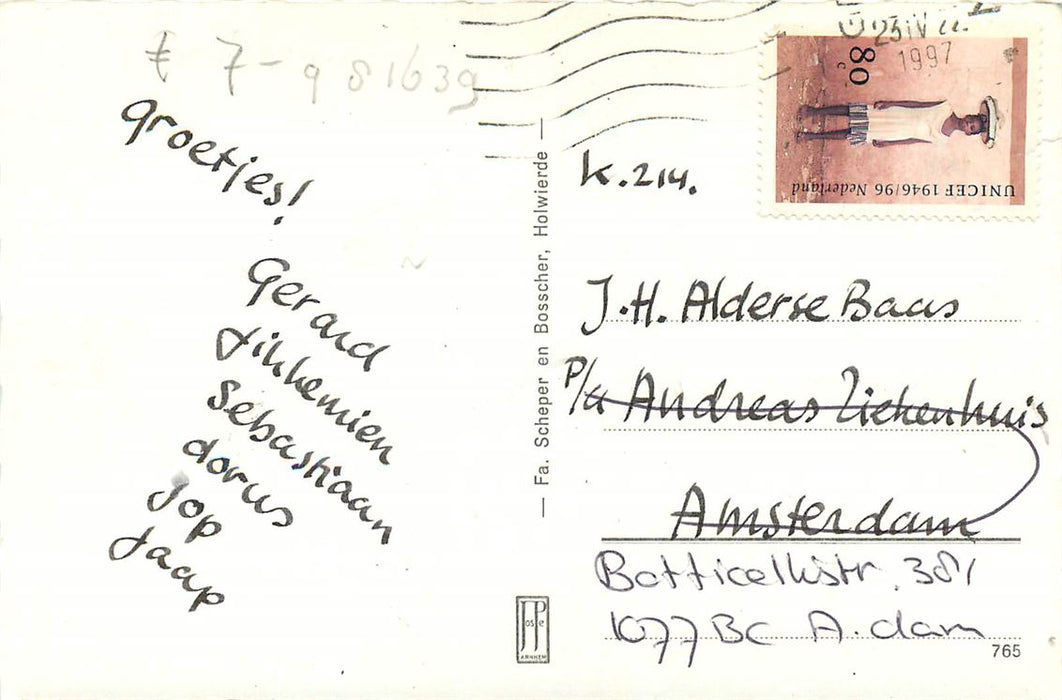 € 7 - 981639
groetjes!
Gerard
Jikkemien
Sebastiaan
dorus
Jop
Jaap
— Fa. Scheper en Bosscher, Holwierde —
JosPe
ARNHEM
1997
80 c
UNICEF 1946/96 Nederland
k.214.
J.H. Alderse Baas
P/a Andreas Ziekenhuis
Amsterdam
Botticellistr. 38I
1077 BC A.dam
765